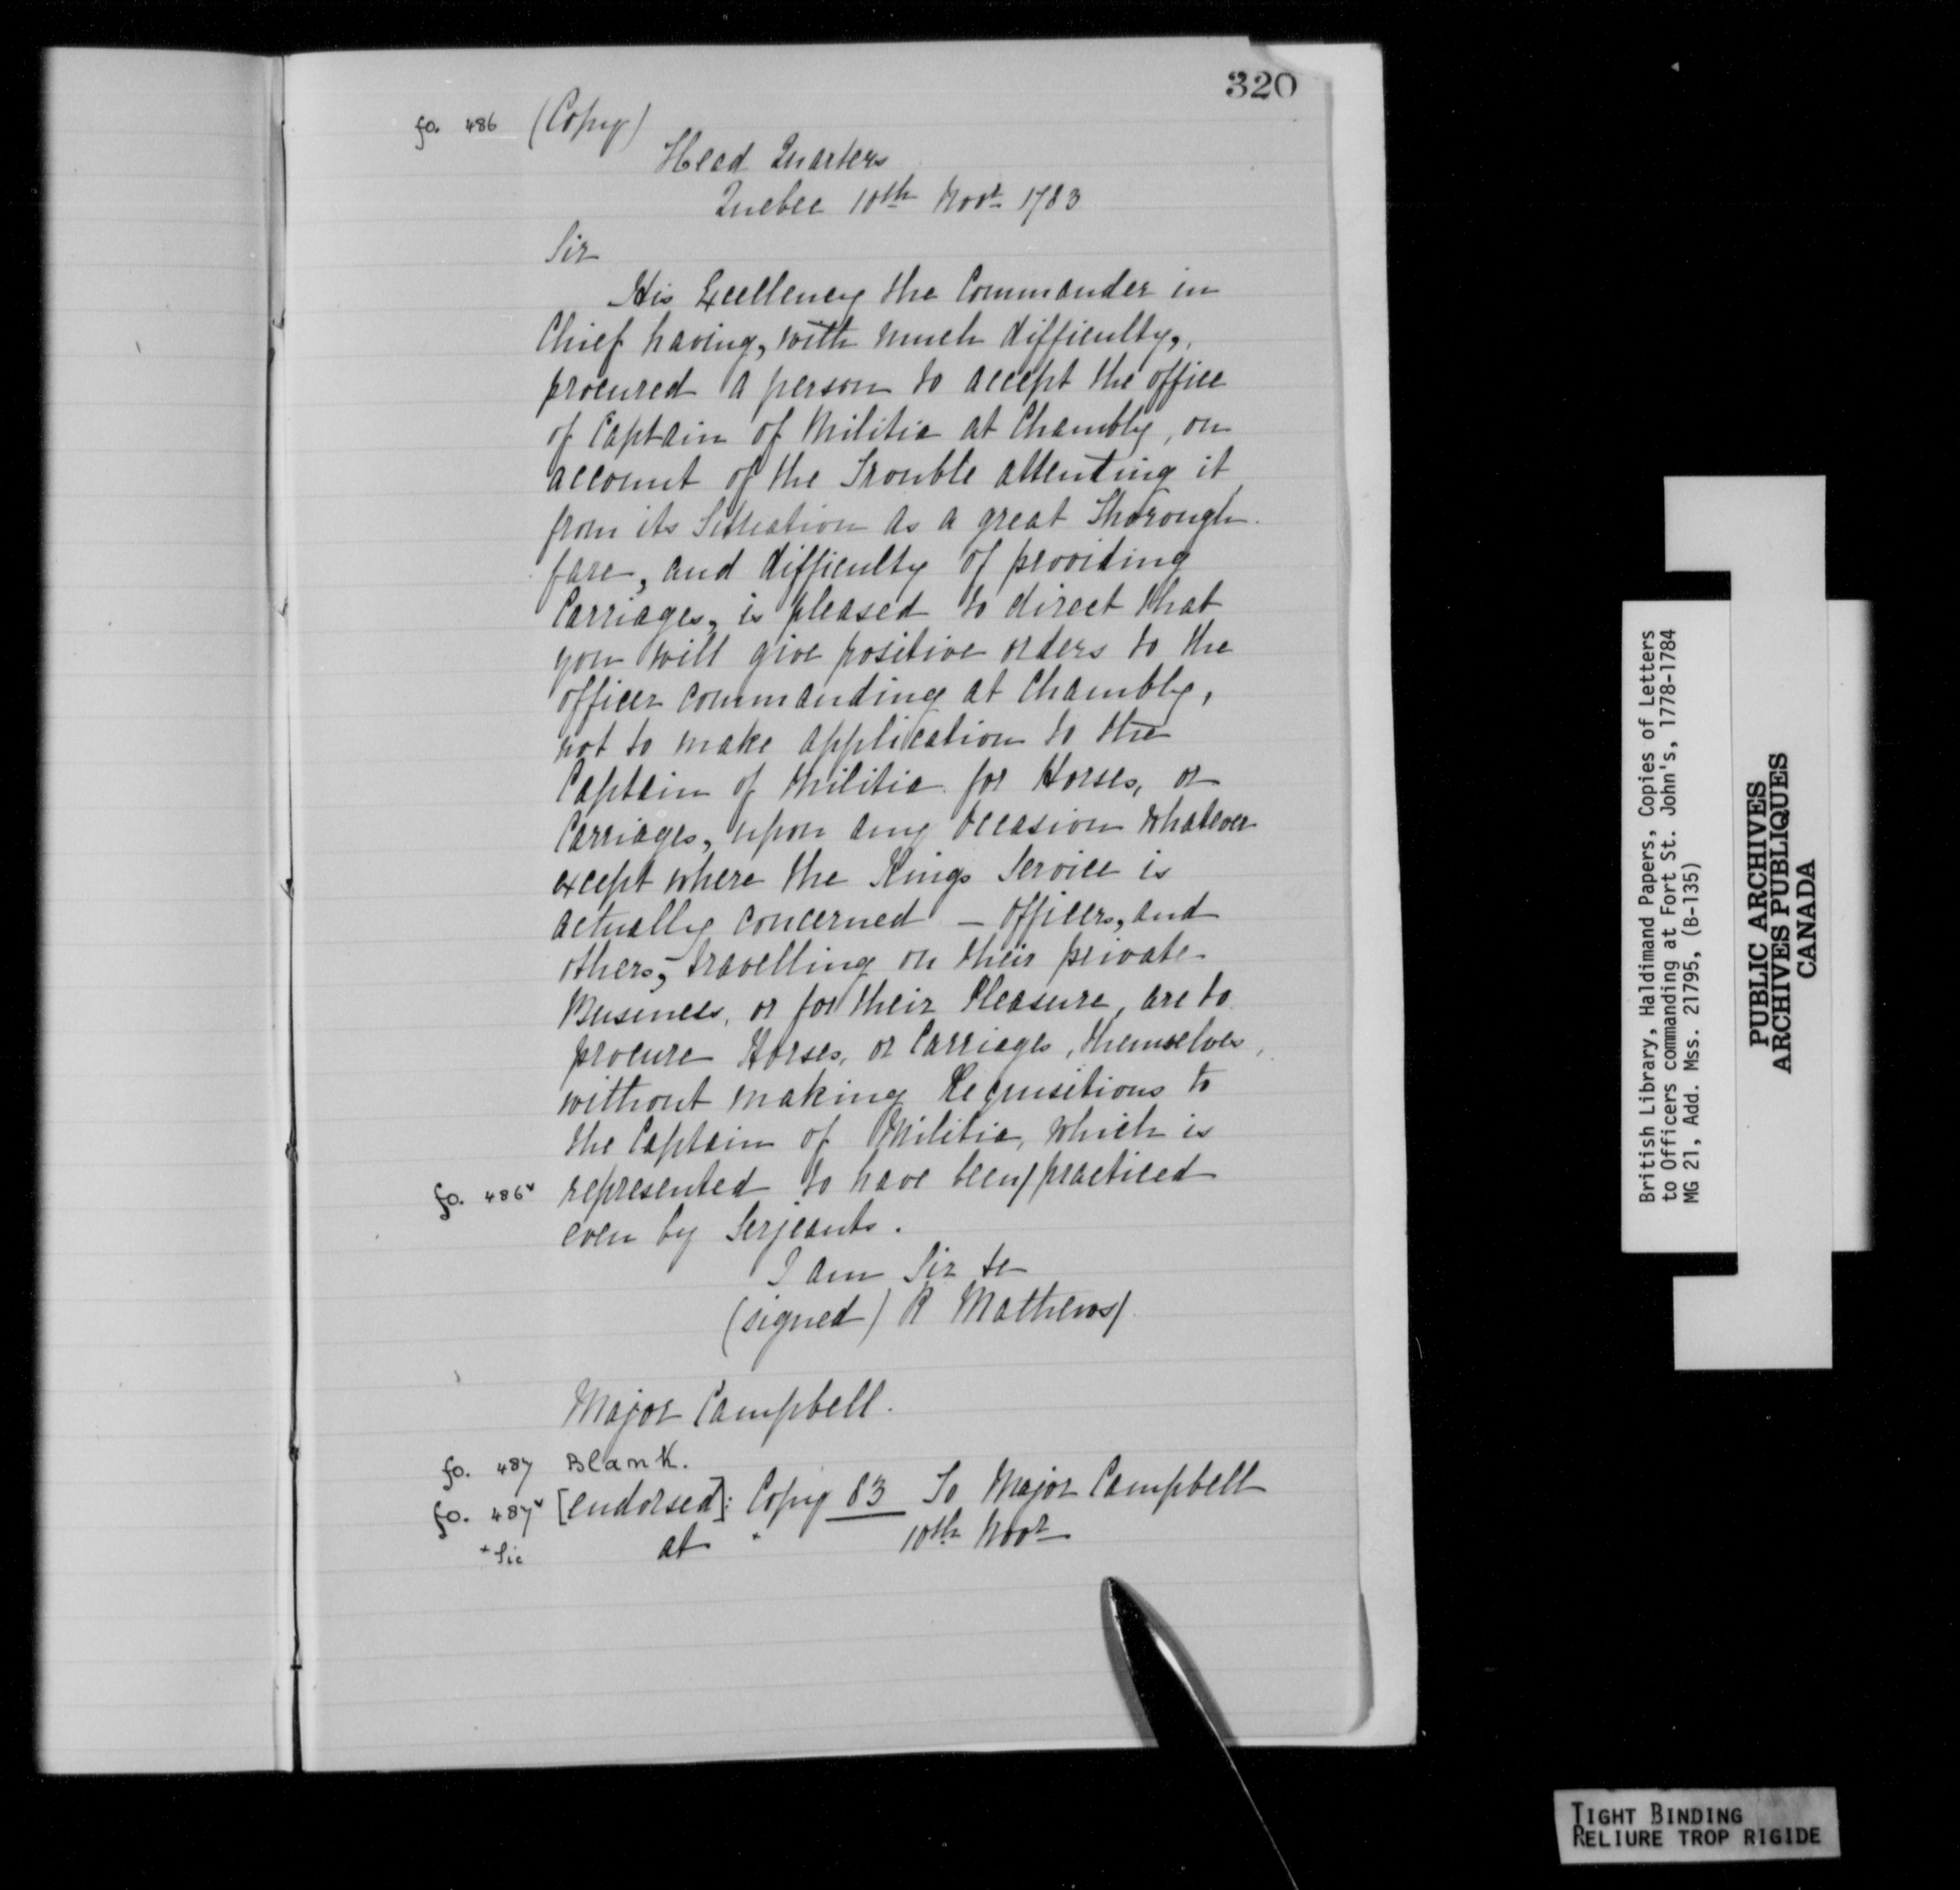 320
fo. 486 (Copy)
Head Quarters
Quebec 10th Novr 1783
Sir
His Excellency the Commander in
Chief having, with much difficulty,
procured a person to accept the office
of Captain of Militia at Chambly, on
account of the Trouble attending it,
from its Situation as a great Thorough
fare, and difficulty of providing
Carriages, is pleased to direct that
you will give positive orders to the
officer commanding at Chambly,
not to make application to the
Captain of Militia for Horses, or
Carriages, upon any occasion whatever
except where the Kings Service is
actually concerned – officers, and
others, travelling on their private
Business, or for their Pleasure, are to
procure Horses, or Carriages, themselves,
without making Requisitions to
the Captain of Militia, which is
fo. 486v represented to have been/practiced
even by Serjeants.
I am Sir &c
(signed) R Mathews/
Major Campbell.
fo. 487 Blank.
fo. 487v [endorsed]: Copy 83 To Major Campbell
+ Sic at + 10th Novr
British Library, Haldimand Papers, Copies of Letters
to Officers commanding at Fort St. John's, 1778-1784
MG 21, Add. Mss. 21795, (B-135)
PUBLIC ARCHIVES
ARCHIVES PUBLIQUES
CANADA
TIGHT BINDING
RELIURE TROP RIGIDE